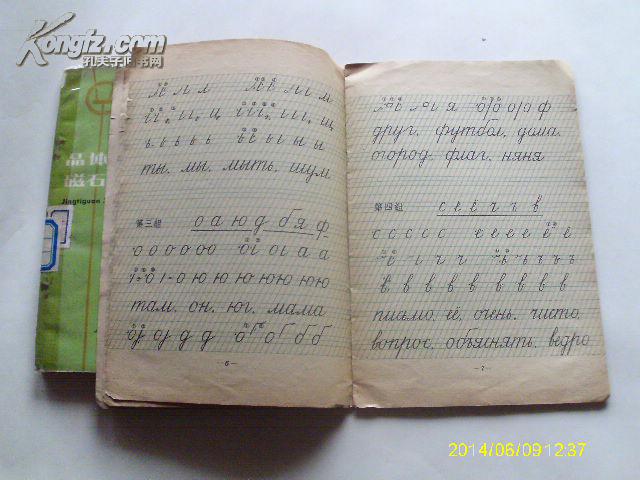 Kongfz.com
孔夫子旧书网
晶体
磁石
Jingtiguan
л л л м
ц щ
ь ь ь ь ь ы ы ы
ты. мы. мыть. шум
第三组 о а ю д б я ф
о о о о о о а а
ю ю ю ю ю ю
там. он. юг. мама
д д б б б
—6—
я ф
друг. футбол. дома.
огород. флаг. няня
第四组 с е ё ч ъ в
с с с с с е е е е ё ё
ч ч ъ ъ ъ
в в в в в в в в
письмо. её. очень. чисто.
вопрос. объяснять. ведро
—7—
2014/06/09 12:37